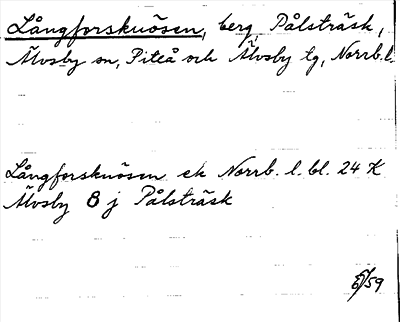 Långforsknösen, berg, Pålsträsk,
Älvsby sn, Piteå och Älvsby tg, Norrb. l.
Långforsknösen ek Norrb. l. bl. 24 K
Älvsby 8 j Pålsträsk
59